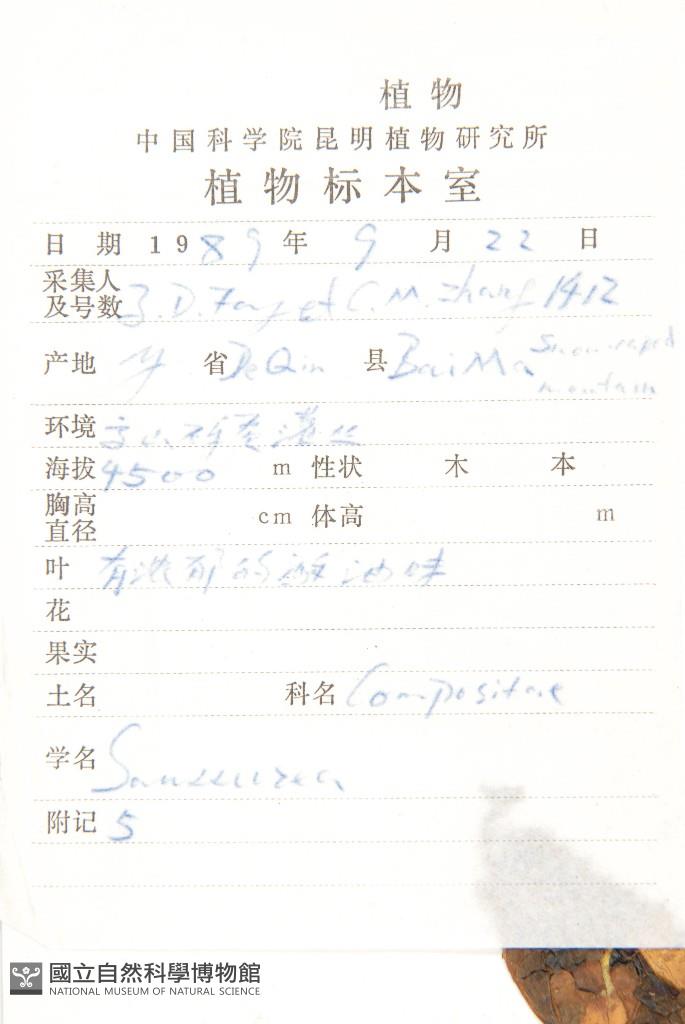 植物
中国科学院昆明植物研究所
植物标本室
日期 1989年 9月 22日
采集人及号数 Z.D.Fang et C.M.Zhang 1412
产地 省 DeQin 县 BaiMa Snow-caped mountain
环境 高山砾石
海拔 4500 m 性状 木本
胸高直径 cm 体高 m
叶 有浓郁的酥油味
花
果实
土名 科名 Compositae
学名 Saussurea
附记 5
國立自然科學博物館
NATIONAL MUSEUM OF NATURAL SCIENCE